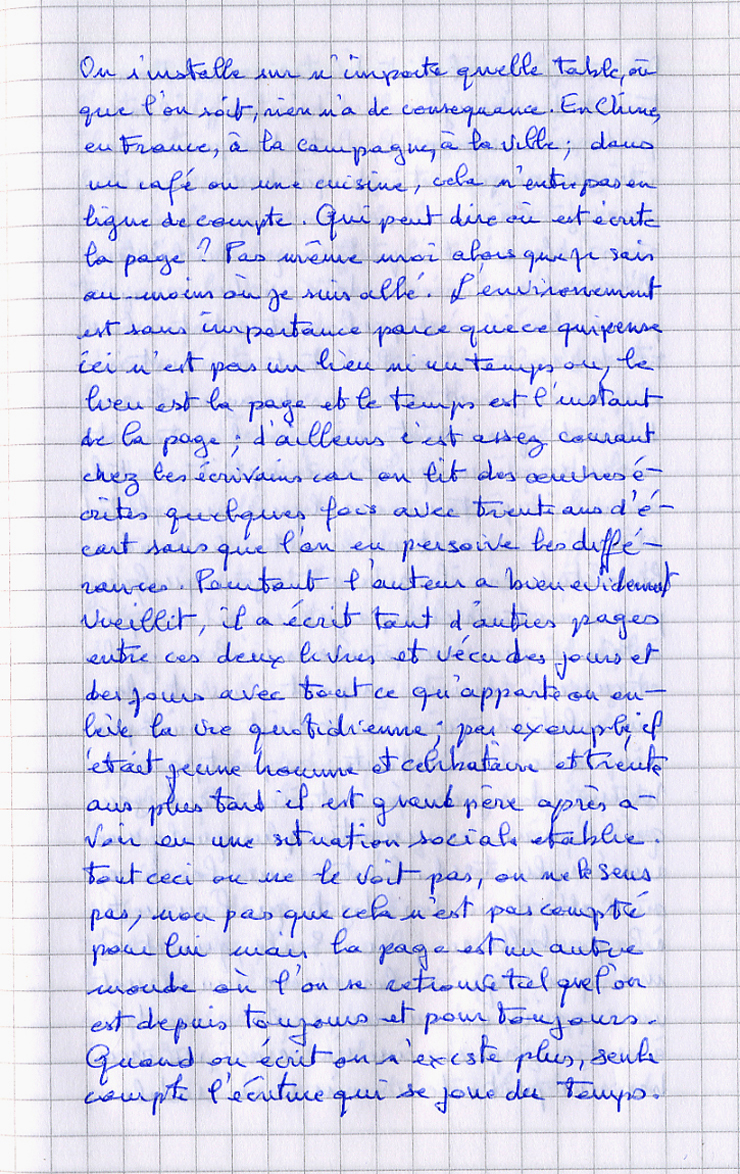 On s'installe sur n'importe quelle table, où
que l'on soit, rien n'a de consequance. En Chine,
en France, à la campagne, à la ville ; dans
un café ou une cuisine, cela n'entre pas en
ligne de compte. Qui peut dire où est écrite
la page ? Pas même moi alors que je sais
au-moins où je suis allé. L'environnement
est sans importance parce que ce qui pense
ici n'est pas un lieu ni un temps ou, le
lieu est la page et le temps est l'instant
de la page ; d'ailleurs c'est assez courant
chez les écrivains car on lit des œuvres é-
crites quelques fois avec trente ans d'é-
cart sans que l'on en persoive les diffé-
rances. Pourtant l'auteur a bien evidemment
vieillit, il a écrit tant d'autres pages
entre ces deux livres et vécu des jours et
des jours avec tout ce qu'apporte ou en-
lève la vie quotidienne ; par exemple, il
était jeune homme et celibataire et trente
ans plus tard il est grand père après a-
voir eu une situation sociale etablie.
tout ceci on ne le voit pas, on ne le sens
pas, non pas que cela n'est pas compté
pour lui mais la page est un autre
monde où l'on se retrouve tel que l'on
est depuis toujours et pour toujours.
Quand on écrit on n'existe plus, seule
compte l'écriture qui se joue du temps.